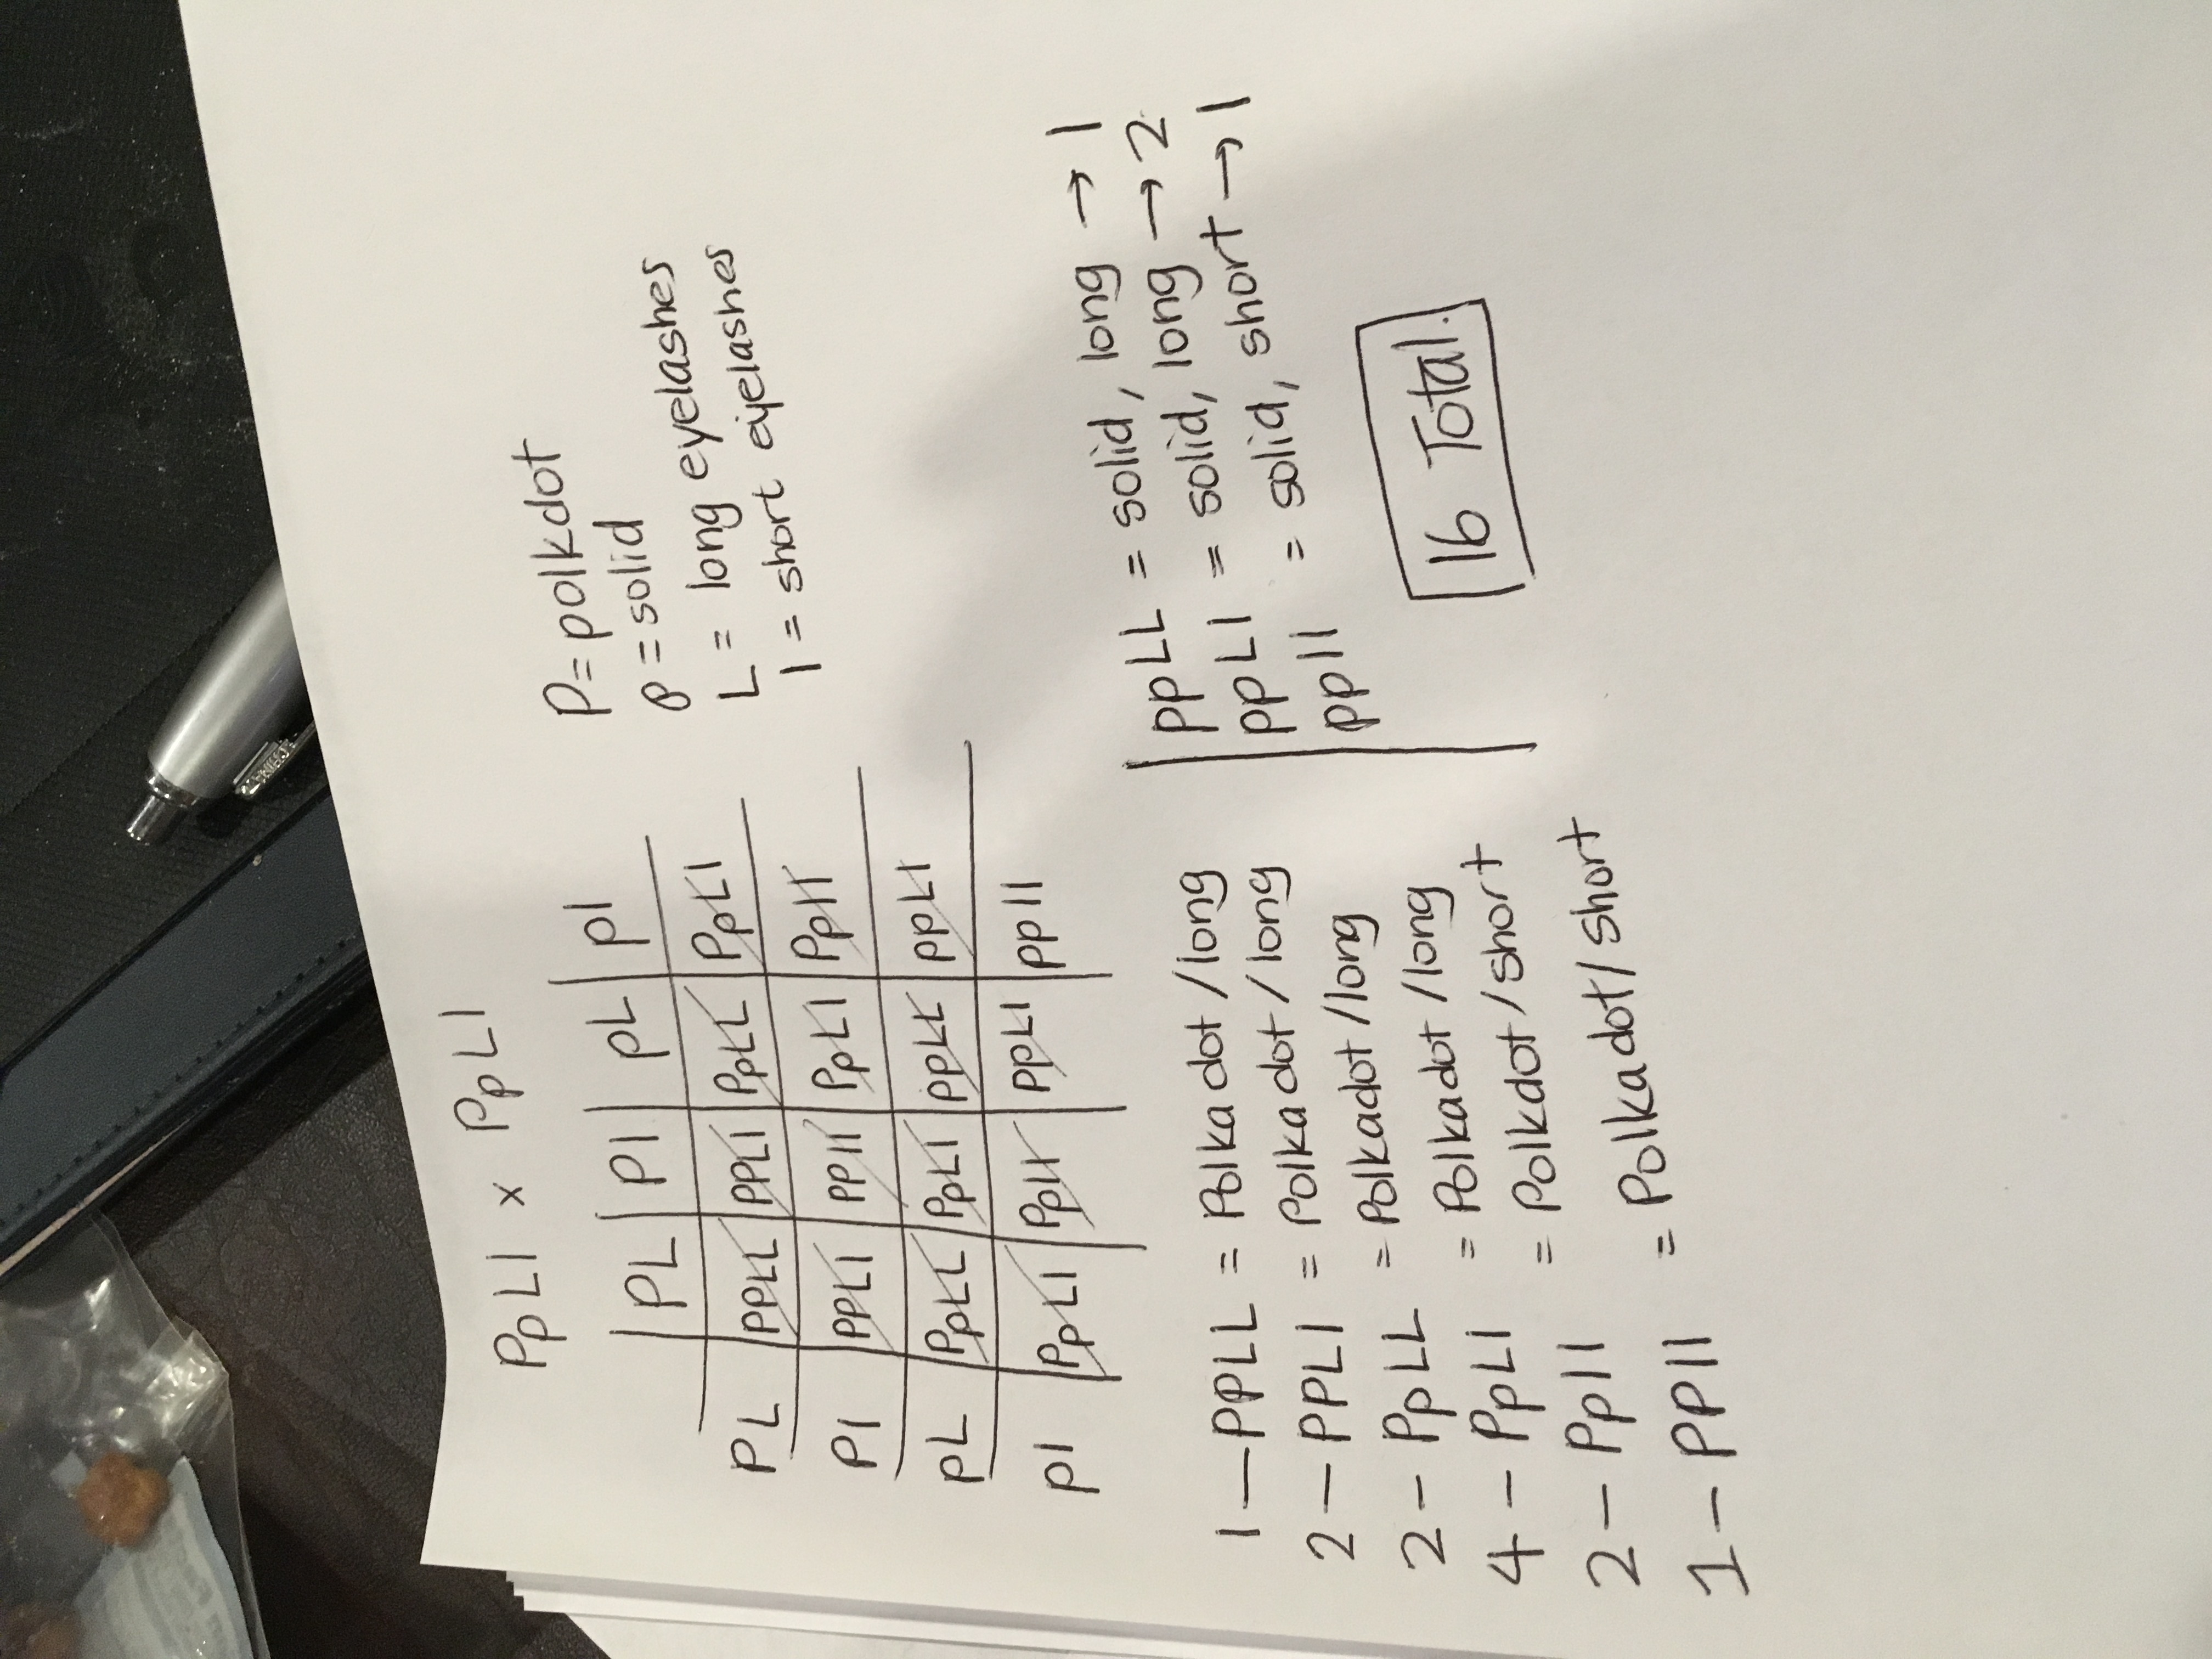 PpLl x PpLl
P = polkdot
p = solid
L = long eyelashes
l = short eyelashes
PL Pl pL pl
PL PPLL PPLl PpLL PpLl
Pl PPLl PPll PpLl Ppll
pL PpLL PpLl ppLL ppLl
pl PpLl Ppll ppLl ppll
1 - PPLL = Polkadot / long
2 - PPLl = Polkadot / long
2 - PpLL = Polkadot / long
4 - PpLl = Polkadot / long
2 - Ppll = Polkdot / short
1 - PPll = Polkadot / short
ppLL = solid, long → 1
ppLl = solid, long → 2
ppll = solid, short → 1
16 Total.